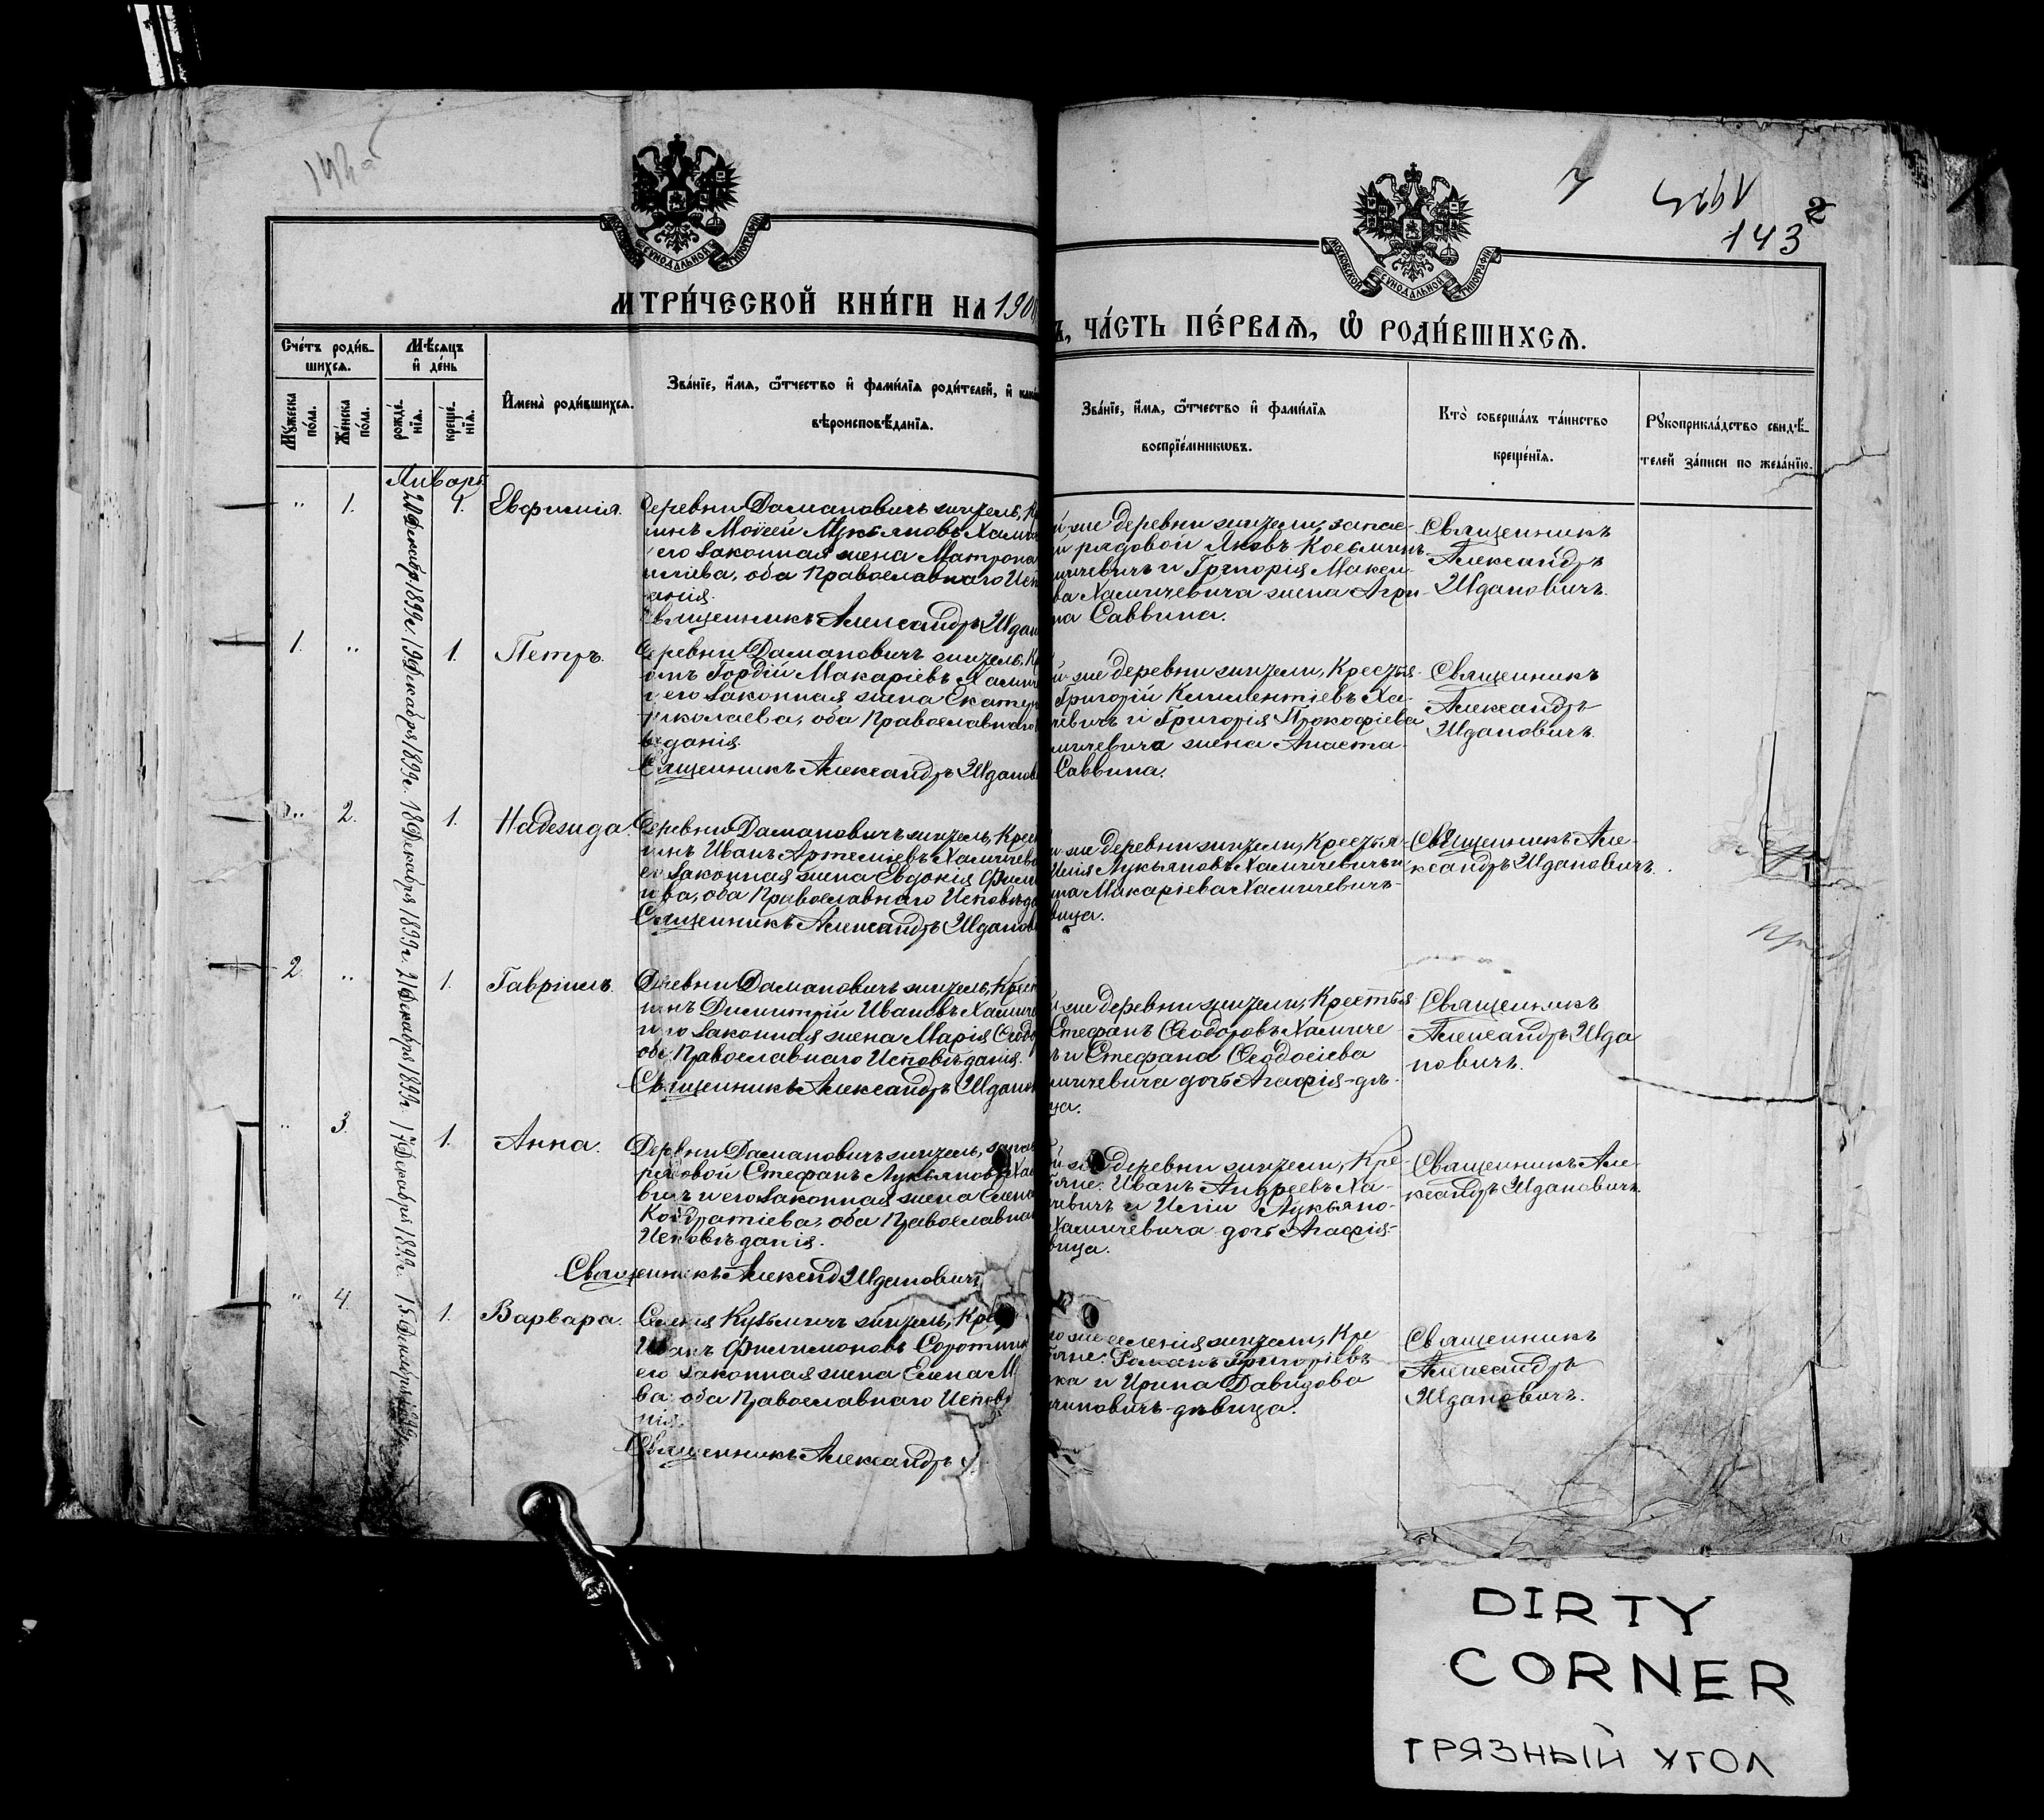 143
2
МОСКОВСКОЙ СѴНОДАЛЬНОЙ ТИПОГРАФІИ
МОСКОВСКОЙ СѴНОДАЛЬНОЙ ТИПОГРАФІИ
МТРИ́ЧЕСКОЙ КНИ́ГИ НА 190
Ъ, ЧА́СТЬ ПЕ́РВАЯ, Ѡ РОДИ́ВШИХСЯ.
Сче́тъ роди́в-
шихся.
Мѣ́сяцъ
и де́нь
Му́жеска
по́ла.
Же́нска
по́ла.
рожде́-
нїя.
креще́-
нїя.
Имена̀ роди́вшихся.
Зва́нїе, и́мя, ѻ́тчество и фами́лїя роди́телей, и како
вѣроисповѣ́данїя.
Зва́нїе, и́мя, ѻ́тчество и фами́лїя
воспрїе́мниковъ.
Кто̀ соверша́лъ та́инство
креще́нїя.
Рукоприкла́дство свидѣ́-
телей за́писи по жела́нїю.
Январь
" 1. 1. Евфимія.
Деревни Дамановичъ житель, Кр
инъ Моѵсей Лукьяновъ Халиче
его законная жена Матрона
оба Православнаго Исп
анія.
Священникъ Александръ Ждан
й же деревни жители, запас-
й рядовой Яковъ Косьминъ
личевичъ и Григорія Макси-
ва Халичевича жена Агри-
на Саввина.
Священникъ
Александръ
Ждановичъ.
20 Декабря 1899г.
1. " 1. Петръ.
Деревни Дамановичъ житель, Кр
инъ Гордій Макаріевъ Халиче
и его законная жена Екатер
Николаева, оба Православнаго
вѣданія.
Священникъ Александръ Жданов
й же деревни жители, Крестья-
Григорій Климентіевъ Ха-
чевичъ и Григорія Прокофіева
личевича жена Анаста-
Саввина.
Священникъ
Александръ
Ждановичъ.
19 Декабря 1899г.
" 2. 1. Надежда.
Деревни Дамановичъ житель, Крес
нинъ Иванъ Артеміевъ Халичев
его законная жена Евдокія Фили
ва, оба Православнаго Исповѣда
Священникъ Александръ Жданов
же деревни жители, Крестья-
Лукьяновъ Халичевичъ и
Макаріева Халичевичъ-
вица.
Священникъ Але-
ксандръ Ждановичъ.
18 Декабря 1899г.
2. " 1. Гавріилъ.
Деревни Дамановичъ житель, Крест
нинъ Димитрій Ивановъ Халиче
и его законная жена Марія Ѳеодо
оба Православнаго Исповѣданія.
Священникъ Александръ Жданов
же деревни жители, Крестья
Стефанъ Ѳеодоровъ Халиче
ъ и Стефана Ѳеодосіева
личевича дочь Агафія-дѣ-
ца.
Священникъ
Александръ Жда
новичъ.
21 Декабря 1899г.
" 3. 1. Анна.
Деревни Дамановичъ житель, запас
рядовой Стефанъ Лукьяновъ Хал
вичъ и его законная жена Елена
Кондратіева, оба Православна
Исповѣданія.
Священникъ Александ Ждановичъ
й же деревни жители, Кре-
тьяне: Иванъ Андреевъ Ха-
чевичъ и Лукьяно-
Халичевича дочь Агафія-
вица.
Священникъ Але-
ксандръ Ждановичъ.
17 Декабря 1899г.
" 4. 1. Варвара.
Селенія Кузьмичъ житель, Кре
Иванъ Филимоновъ
его законная жена Елена М
ва: оба Православнаго Исповѣ
нія.
Священникъ Александръ
го же селенія жители, Кре
тьяне: Романъ Григоріевъ
ка и Ирина Давидова
новичъ-дѣвица.
Священникъ
Александръ
Ждановичъ.
15 Декабря 1899г.
DIRTY
CORNER
ГРЯЗНЫЙ УГОЛ